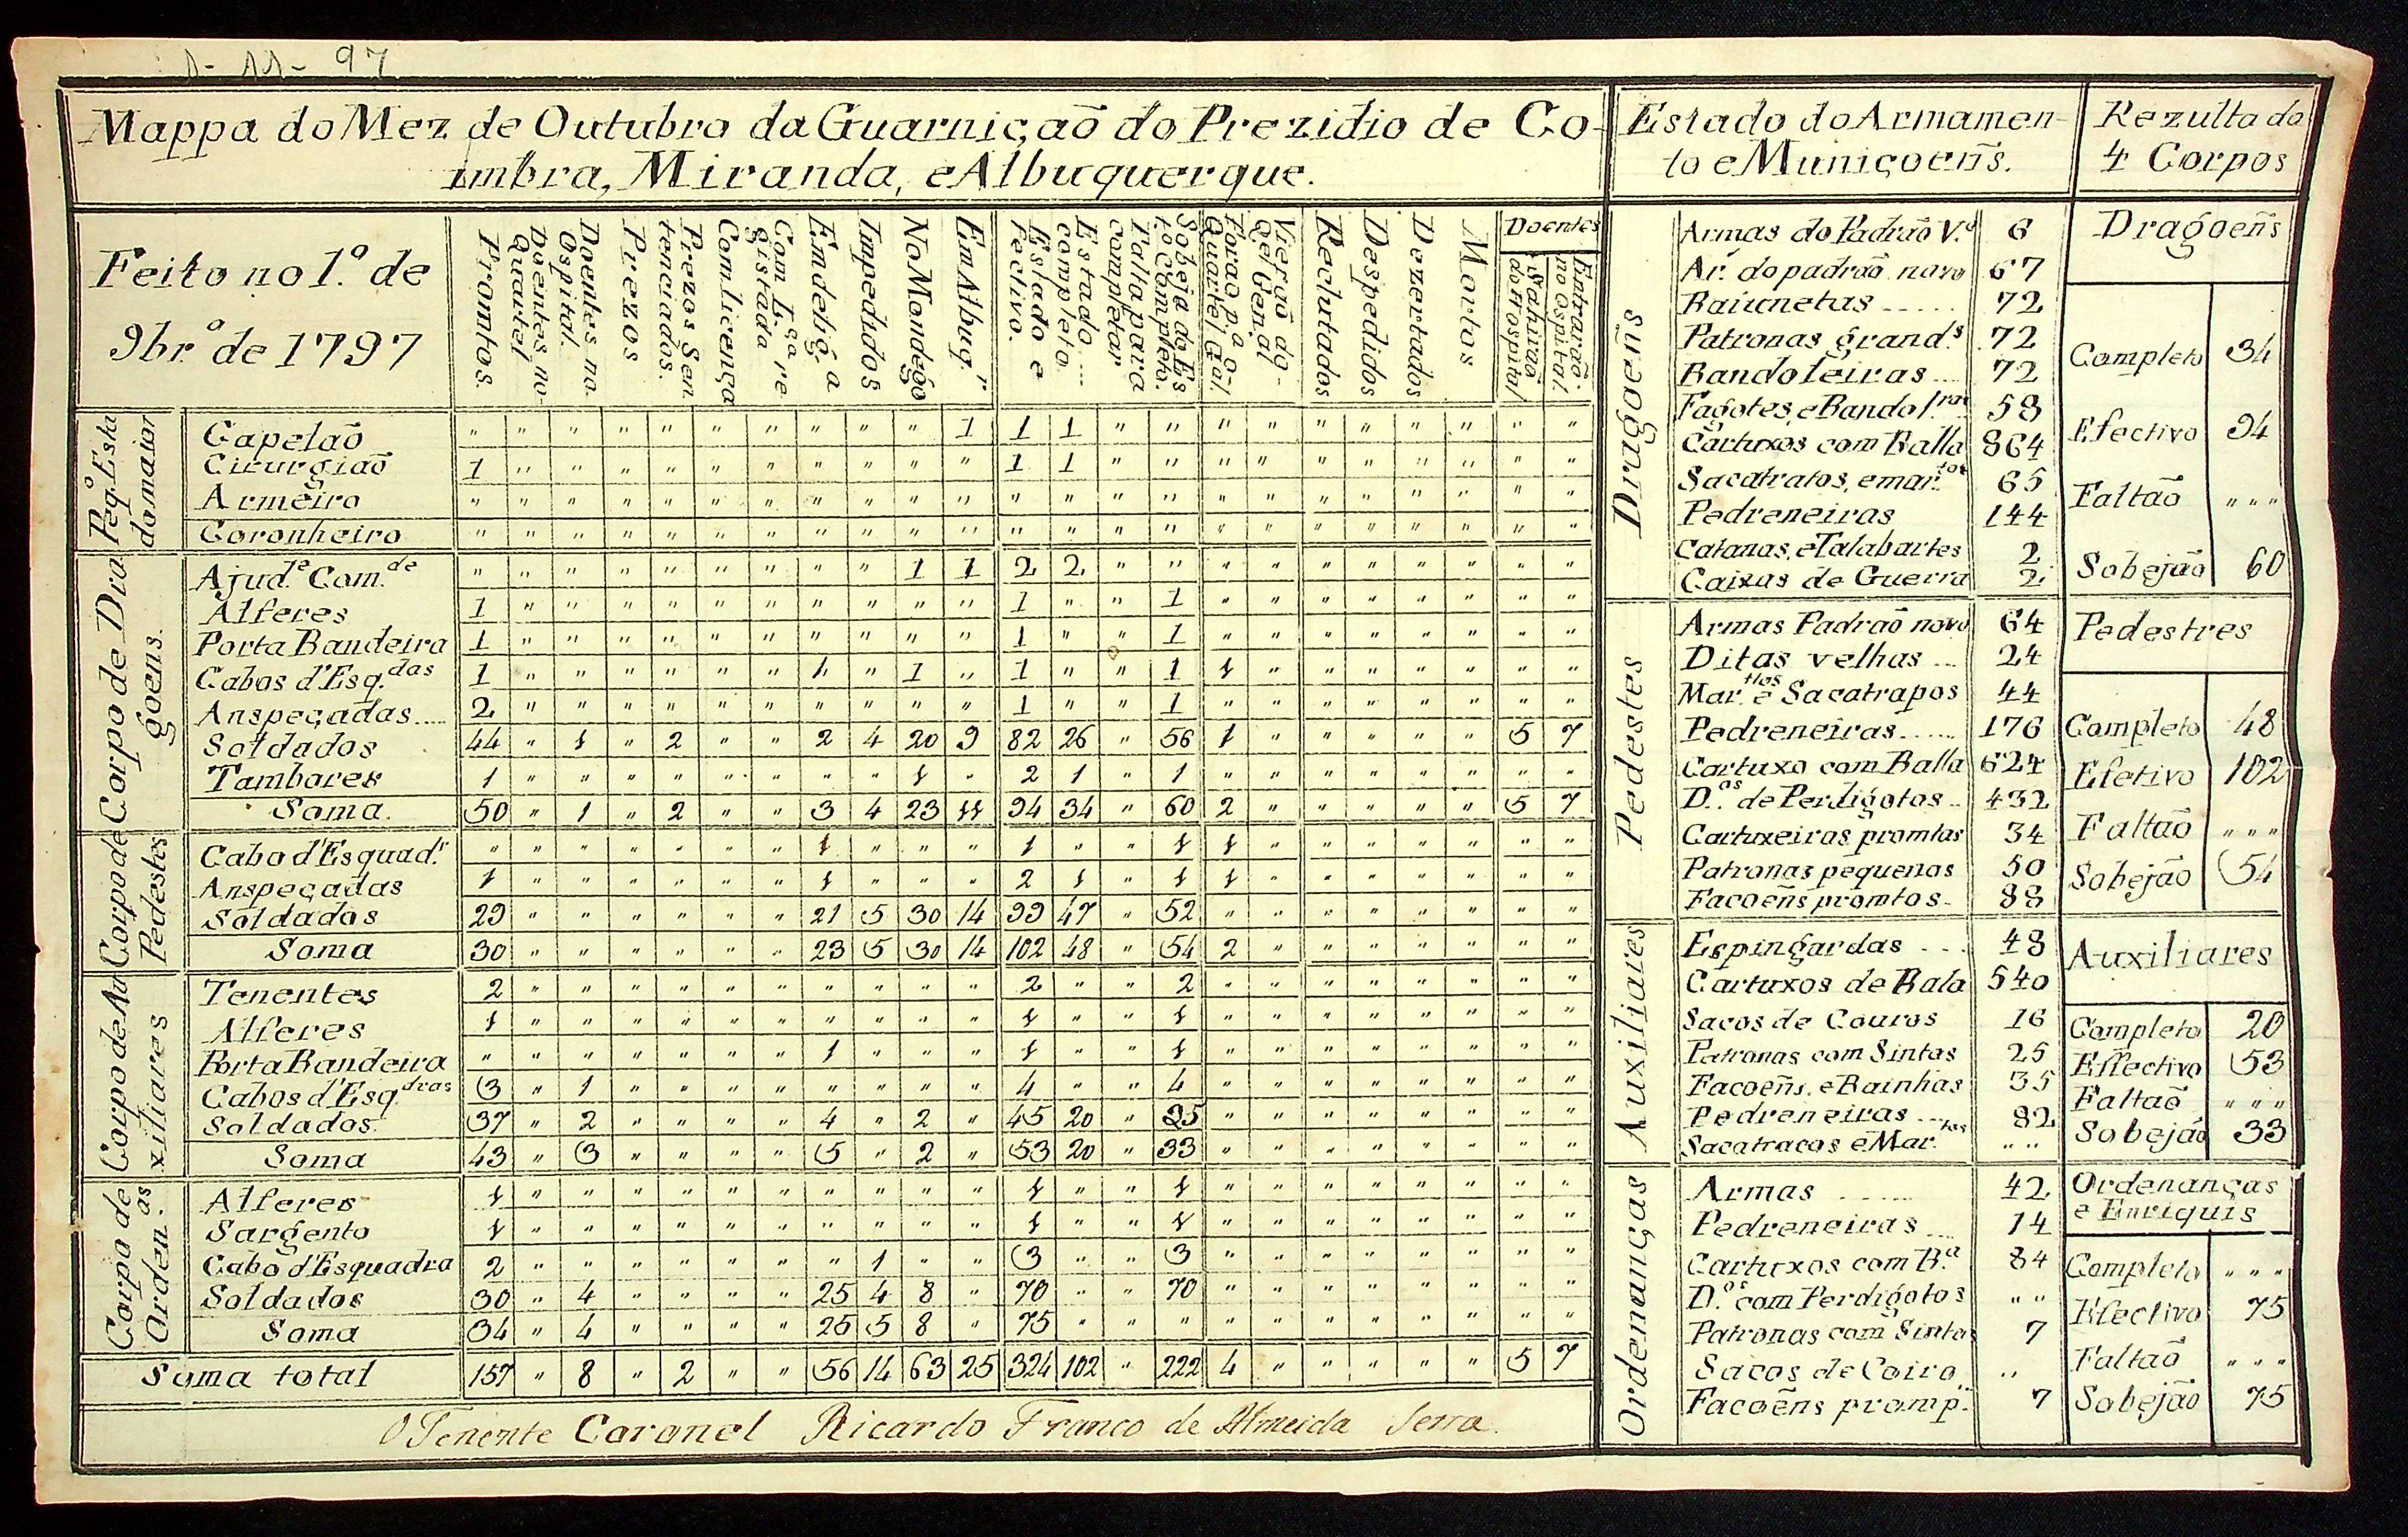 1-11-97
Mappa do Mez de Outubro da Guarnição do Prezidio de Co-
imbra, Miranda, e Albuquerque.
Estado do Armamen-
to e Muniçoens.
Rezulto do
4 Corpos
Feito no 1.º de
9br.º de 1797
Promtos.
Doentes no Quartel
Doentes no Ospital.
Prezos
Prezos Sentenciados.
Com licença
Com L.ça registada
Em delig.a
Impedidos
No Mondego
Em Albuq.r
Estado efectivo.
Estado completo
Falta para completar
Sobeja do Esto. Completo.
Forão p.a o Quartel G.al
Vierão do Q.el Gen.al
Reclutados
Despedidos
Dezertados
Mortos
Doentes
Sahirão do Hospital
Entrarão no Ospital.
Peq.º Estado maior
Capelão " " " " " " " " " " 1 1 1 " " " " " " " " " "
Cirurgião 1 " " " " " " " " " " 1 1 " " " " " " " " " "
Armeiro " " " " " " " " " " " " " " " " " " " " " " "
Coronheiro " " " " " " " " " " " " " " " " " " " " " " "
Corpo de Dragoens.
Ajud.e Com.de " " " " " " " " " 1 1 2 2 " " " " " " " " " "
Alferes 1 " " " " " " " " " " 1 " " 1 " " " " " " " "
Porta Bandeira 1 " " " " " " " " " " 1 " " 1 " " " " " " " "
Cabos d'Esq.das 1 " " " " " " 1 " 1 " 1 " " 1 1 " " " " " " "
Anspeçadas 2 " " " " " " " " " " 1 " " 1 " " " " " " " "
Soldados 44 " 1 " 2 " " 2 4 20 9 82 26 " 56 1 " " " " " 5 7
Tambores 1 " " " " " " " " 1 " 2 1 " 1 " " " " " " " "
Soma. 50 " 1 " 2 " " 3 4 23 11 94 34 " 60 2 " " " " " 5 7
Corpo de Pedestes
Cabo d'Esquad.r " " " " " " " 1 " " " 1 " " 1 1 " " " " " " "
Anspeçadas 1 " " " " " " 1 " " " 2 1 " 1 1 " " " " " " "
Soldados 29 " " " " " " 21 5 30 14 99 47 " 52 " " " " " " " "
Soma 30 " " " " " " 23 5 30 14 102 48 " 54 2 " " " " " " "
Corpo de Auxiliares
Tenentes 2 " " " " " " " " " " 2 " " 2 " " " " " " " "
Alferes 1 " " " " " " " " " " 1 " " 1 " " " " " " " "
Porta Bandeira " " " " " " " 1 " " " 1 " " 1 " " " " " " " "
Cabos d'Esq.dras 3 " 1 " " " " " " " " 4 " " 4 " " " " " " " "
Soldados 37 " 2 " " " " 4 " 2 " 45 20 " 25 " " " " " " " "
Soma 43 " 3 " " " " 5 " 2 " 53 20 " 33 " " " " " " " "
Corpo de Orden.as
Alferes 1 " " " " " " " " " " 1 " " 1 " " " " " " " "
Sargento 1 " " " " " " " " " " 1 " " 1 " " " " " " " "
Cabo d'Esquadra 2 " " " " " " " 1 " " 3 " " 3 " " " " " " " "
Soldados 30 " 4 " " " " 25 4 8 " 70 " " 70 " " " " " " " "
Soma 34 " 4 " " " " 25 5 8 " 75 " " " " " " " " " " "
Soma total 157 " 8 " 2 " " 56 14 63 25 324 102 " 222 4 " " " " " 5 7
O Tenente Coronel Ricardo Franco de Almeida Serra.
Dragoens
Armas do Padrão V.º 6
Ar.s do padrão novo 67
Baiunetas 72
Patronas grand.s 72
Bandoleiras 72
Fagotes, e Bandol.ras 58
Cartuxos com Balla 864
Sacatratos, e mar.tos 65
Pedreneiras 144
Catanas, e Talabartes 2
Caixas de Guerra 2
Pedestes
Armas Padrão novo 64
Ditas velhas 24
Mar.tlos e Sacatrapos 44
Pedreneiras 176
Cartuxo com Balla 624
D.os de Perdigotos 432
Cartuxeiras promtas 34
Patronas pequenas 50
Facoens promtos 88
Auxiliares
Espingardas 48
Cartuxos de Bala 540
Sacos de Couros 16
Patronas com Sintas 25
Facoens, e Bainhas 35
Pedreneiras 82
Sacatracos e Mar.tos " "
Ordenanças
Armas 42
Pedreneiras 14
Cartuxos com B.a 84
D.os com Perdigotos " "
Patronas com Sintas 7
Sacos de Coiro "
Facoens promp. 7
Dragoens
Completo 34
Efectivo 94
Faltão " " "
Sobejão 60
Pedestres
Completo 48
Efetivo 102
Faltão " " "
Sobejão 54
Auxiliares
Completo 20
Effectivo 53
Faltão " " "
Sobejão 33
Ordenanças
e Enriquis
Completo " " "
Efectivo 75
Faltão " " "
Sobejão 75